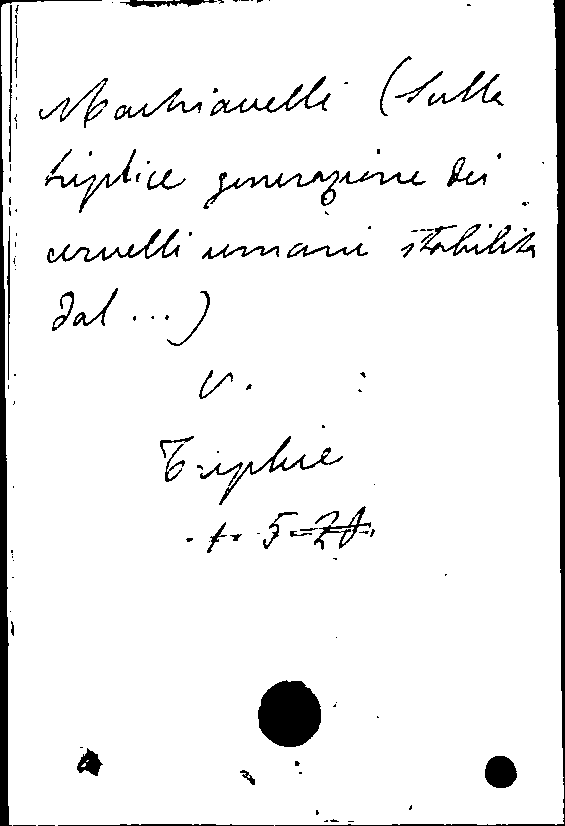 Machiavelli (Sulla
triplice generazione dei
cervelli umani stabilita
dal ...)
v.
Triplice